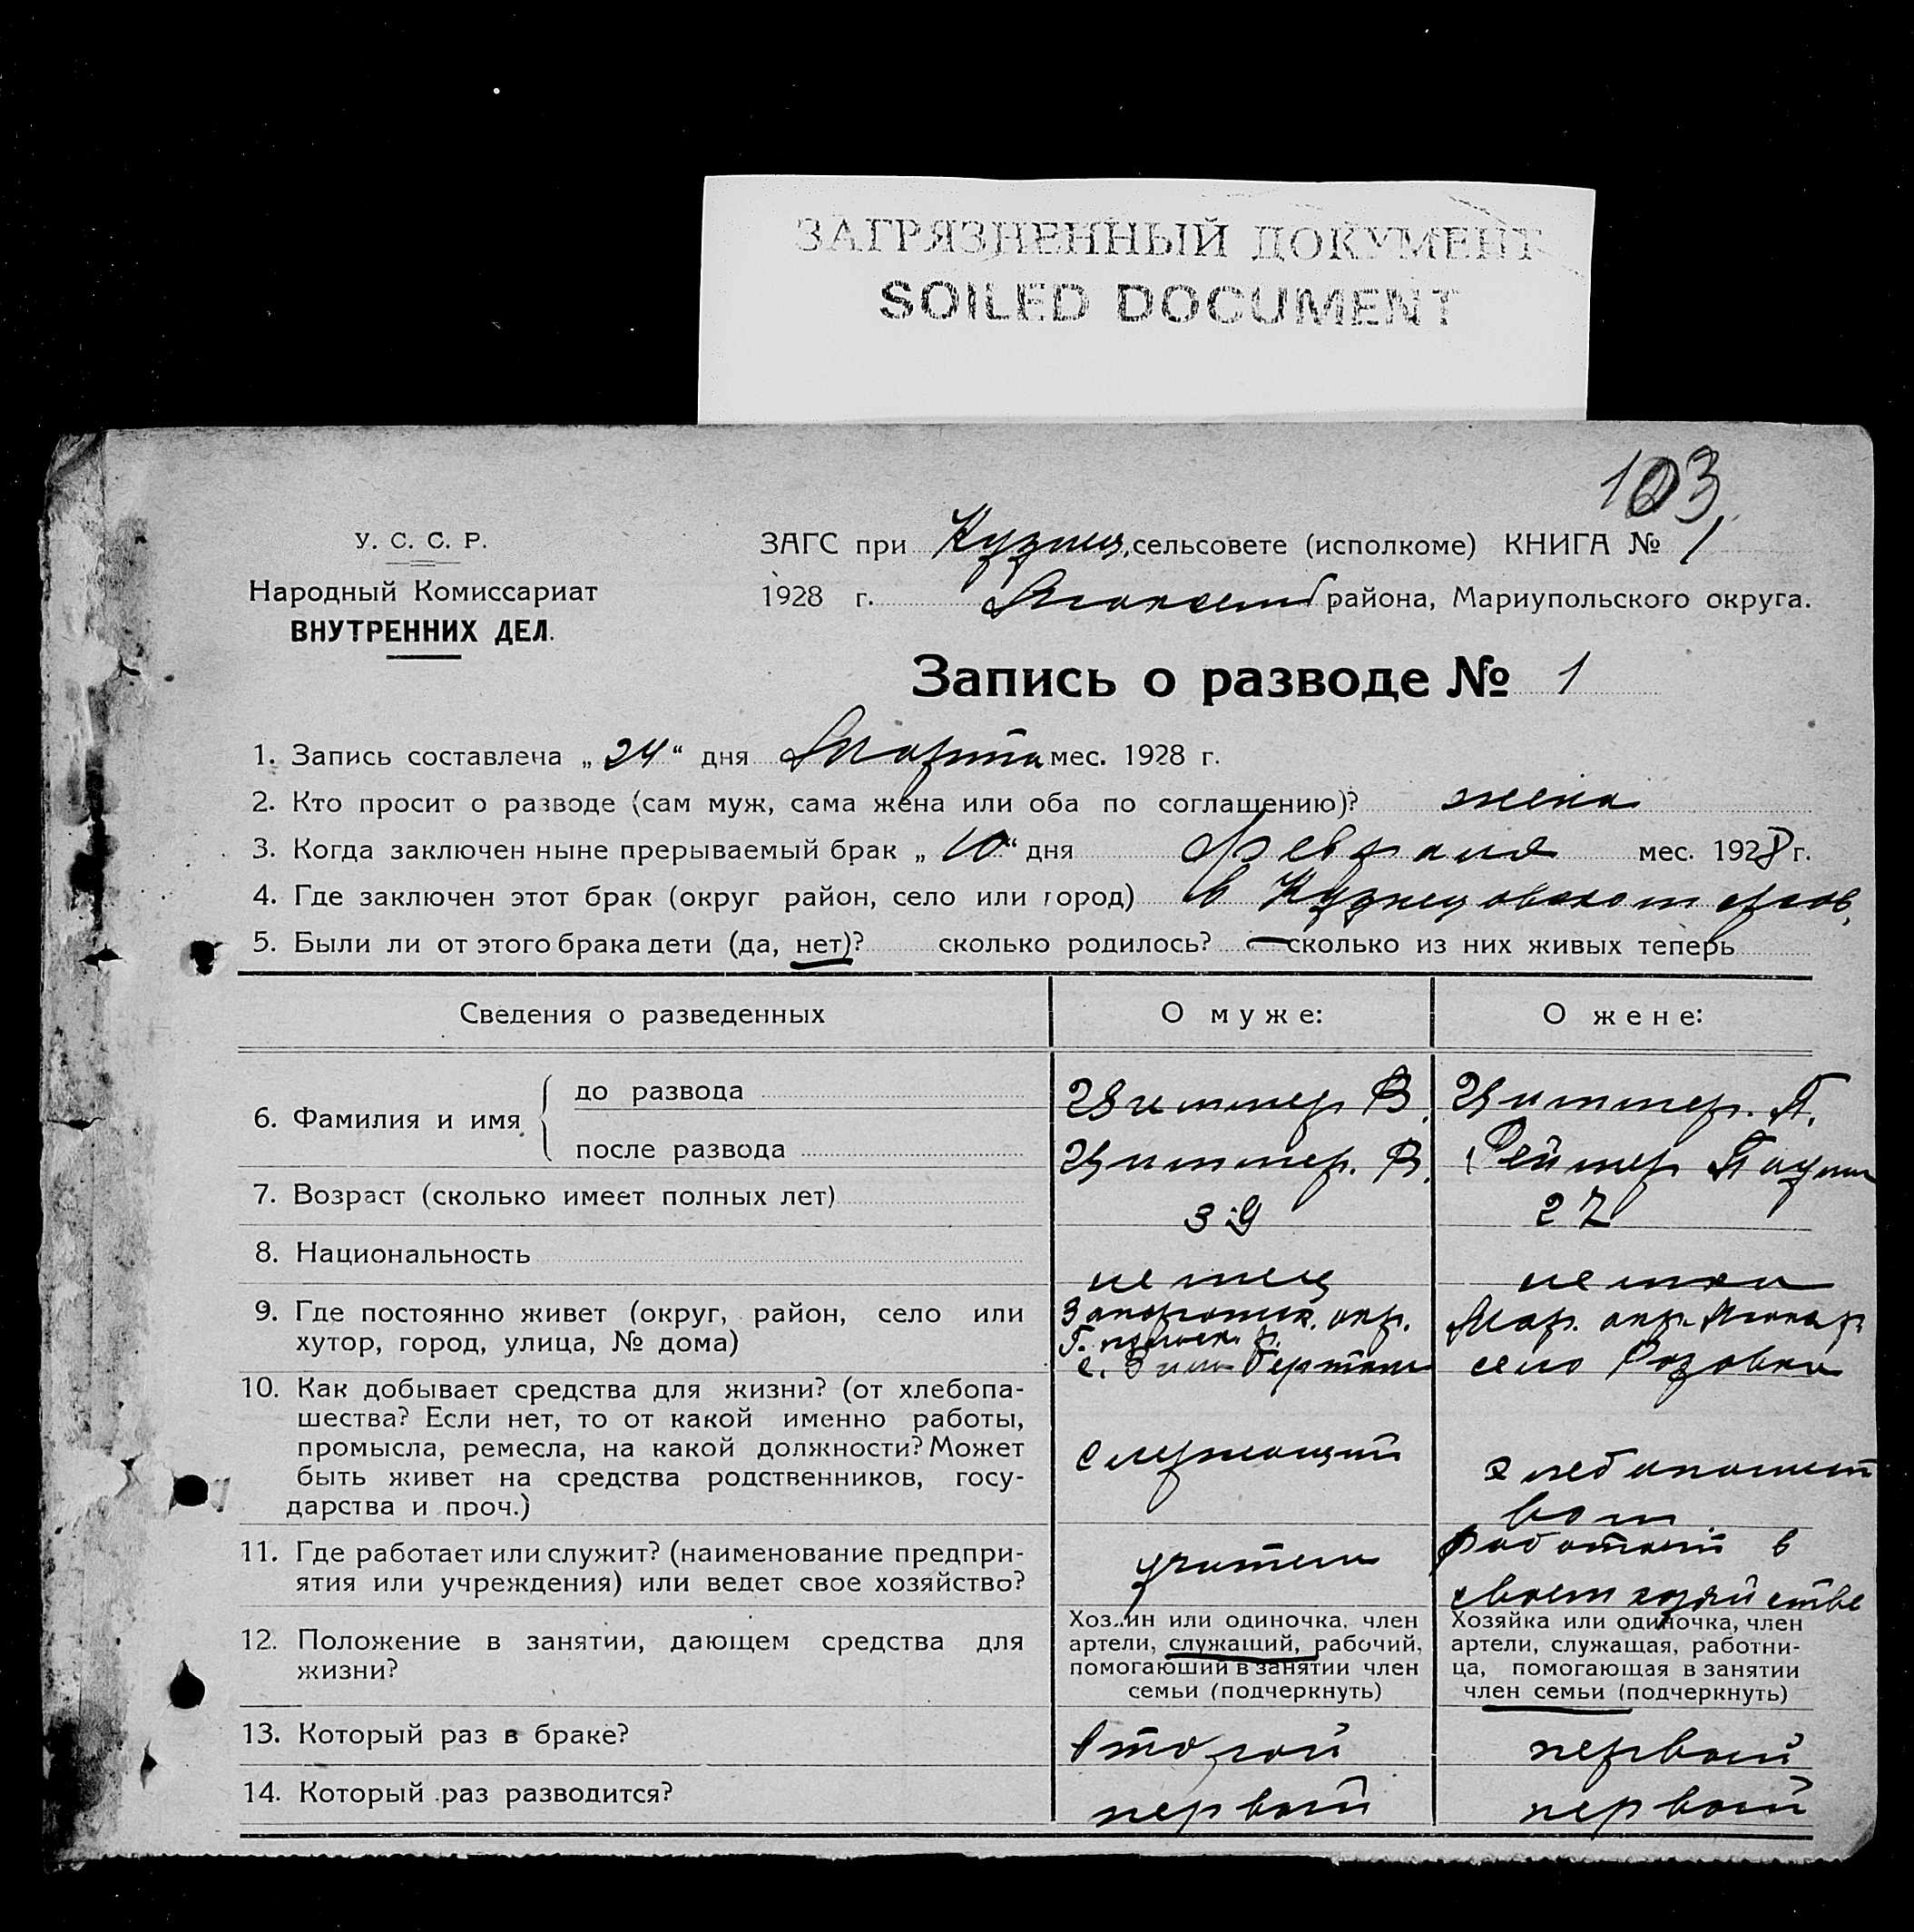 ЗАГРЯЗНЕННЫЙ ДОКУМЕНТ
SOILED DOCUMENT
103
У. С. С. Р.
Народный Комиссариат
ВНУТРЕННИХ ДЕЛ.
ЗАГС при Кузнец. сельсовете (исполкоме) КНИГА № 1
1928 г. района, Мариупольского округа.
Запись о разводе № 1
1. Запись составлена „24“ дня Марта мес. 1928 г.
2. Кто просит о разводе (сам муж, сама жена или оба по соглащению)? жена
3. Когда заключен ныне прерываемый брак „10“ дня Февраля мес. 1928 г.
4. Где заключен этот брак (округ район, село или город) в Кузнецовском
5. Были ли от этого брака дети (да, нет)? сколько родилось? — сколько из них живых теперь
Сведения о разведенных О муже: О жене:
6. Фамилия и имя
до развода Циммер В. Циммер. П.
после развода Циммер. В. Реймер
7. Возраст (сколько имеет полных лет) 39 27
8. Национальность немец немка
9. Где постоянно живет (округ, район, село или
хутор, город, улица, № дома)
Запорожск. окр.
с.
Мар. окр.
село Розовка
10. Как добывает средства для жизни? (от хлебопа-
шества? Если нет, то от какой именно работы,
промысла, ремесла, на какой должности? Может
быть живет на средства родственников, госу-
дарства и проч.)
служащий
хлебопашест
вом
11. Где работает или служит? (наименование предпри-
ятия или учреждения) или ведет свое хозяйство?
учитель
работает в
своем хозяйстве
12. Положение в занятии, дающем средства для
жизни?
Хоз..ин или одиночка, член
артели, служащий, рабочий,
помогаюший в занятии член
семьи (подчеркнуть)
Хозяйка или одиночка, член
артели, служащая, работни-
ца, помогающая в занятии
член семьи (подчеркнуть)
13. Который раз в браке? второй первый
14. Который раз разводится? первый первый